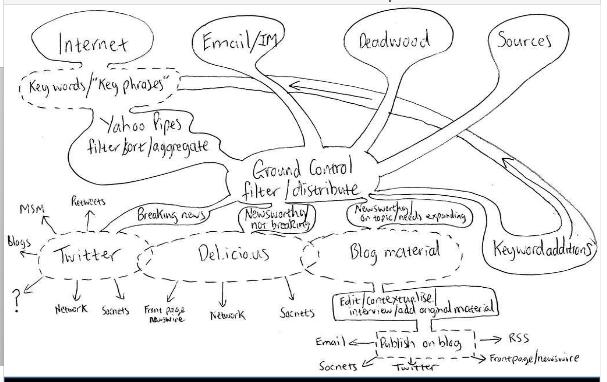 Internet
Email/IM
Deadwood
Sources
Key words/"Key phrases"
Yahoo Pipes
filter/sort/aggregate
Ground Control
filter/distribute
Breaking news
Newsworthy
not breaking
Newsworthy/
on topic/needs expanding
Keyword additions
MSM
Retweets
Blogs
Twitter
Delicious
Blog material
?
Network
Socnets
Front page
newswire
Network
Socnets
Edit/contextualise/
interview/add original material
Email
Publish on blog
RSS
Socnets
Twitter
Frontpage/newswire